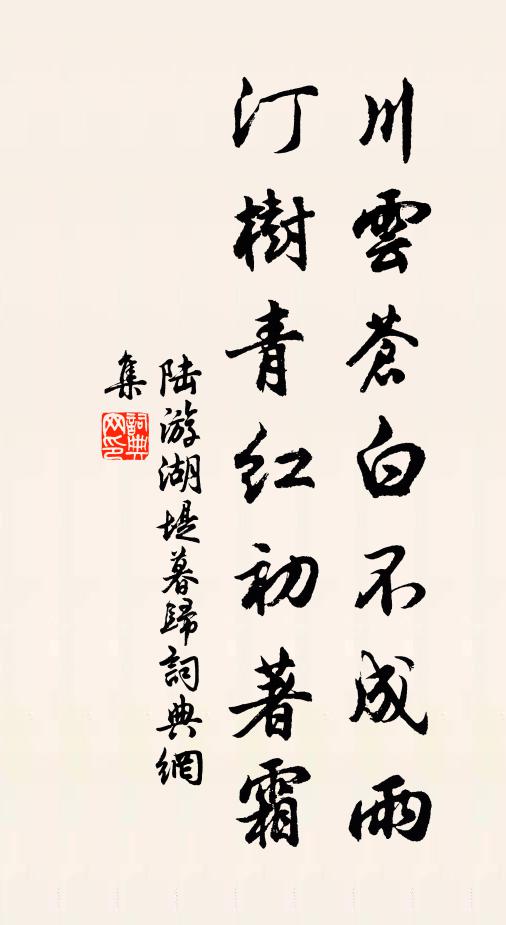 川雲蒼白不成雨
汀樹青红初著霜
陆游湖堤暮歸詞典網
集
詞典
网印